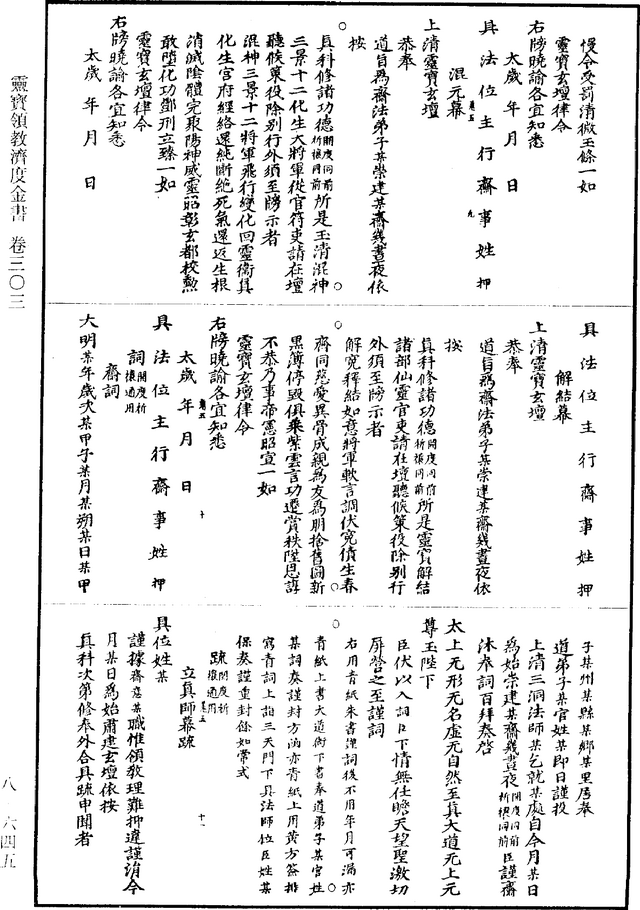 慢令受罰清微玉條一如
靈寶玄壇律令
右牓曉諭各宜知悉
太歲 年 月 日
具法位主行齋事姓 押
混元幕
上清靈寶玄壇
恭奉
道旨爲齋法弟子某崇建某齋幾晝夜依
按
眞科修諸功德開度同前祈禳同前所是玉清混神
三景十二化生大將軍從官符吏請在壇
聽候策役除別行外須至牓示者
混神三景十二將軍飛行變化回靈衞眞
化生宮府經絡還純斷絕死氣還返生根
消滅陰體完聚陽神威靈昭彰玄都校勲
敢墮化功鄷刑立臻一如
靈寶玄壇律令
右牓曉諭各宜知悉
太歲 年 月 日
具法位主行齋事姓 押
解結幕
上清靈寶玄壇
恭奉
道旨爲齋法弟子某崇建某齋幾晝夜依
按
眞科修諸功德開度同前祈禳同前所是靈寶解結
諸部仙靈官吏請在壇聽候策役除別行
外須至牓示者
解寃釋結如意將軍軟言調伏寃債生春
齊同慈愛異骨成親爲友爲朋捨舊圖新
黑簿停毀俱乘紫雲言功遷賞秩陞恩諄
不恭乃事帝憲昭宣一如
靈寶玄壇律令
右牓曉諭各宜知悉
太歲 年 月 日
具法位主行齋事姓 押
詞開度祈禳通用
齋詞
大明某年歲次某甲子某月某朔某日某甲
子某州某縣某鄉某里居奉
道弟子某官姓某即日謹投
上清三洞法師某乞就某處自今月某日
爲始崇建某齋幾晝夜開度同前祈禳同前臣謹齋
沐奉詞百拜奏啓
太上无形无名虛无自然至眞大道无上元
尊玉陛下
臣伏以入詞臣下情無任瞻天望聖激切
屏營之至謹詞
右用青紙朱書謹詞後不用年月可漏亦
青紙上書大道御下書奉道弟子某官姓
某詞奏謹封方函亦青紙上用黃方簽排
寫青詞上詣三天門下具法師位臣姓某
保奏謹重封餘如常式
疏開度祈禳通用
立眞師幕疏
具位姓某
謹據齋意某職惟領敎理難抑違謹涓今
月某日爲始肅建玄壇依按
眞科次第修奉外合具疏申聞者
靈寶領教濟度金書 卷三〇三
八－六四五